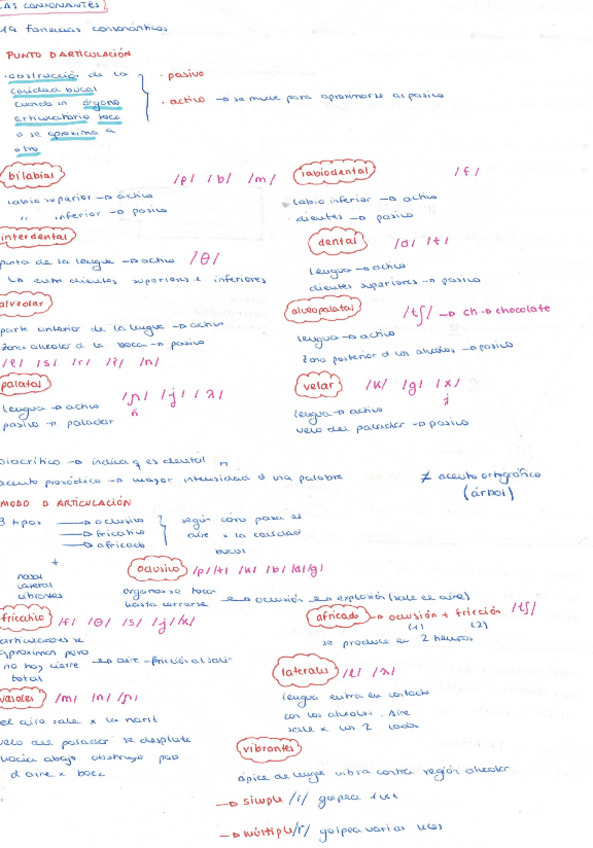 LAS CONSONANTES
19 fonemas consonánticos
PUNTO D ARTICULACIÓN
obstrucción de la
cavidad bucal
cuando un órgano
articulatorio toca
o se aproxima a
otro
· pasivo
· activo → se mueve para aproximarse al pasivo
bilabial /p/ /b/ /m/
labio superior → activo
" inferior → pasivo
labiodental /f/
labio inferior → activo
dientes → pasivo
interdental
punta de la lengua → activo /θ/
↳ entre dientes superiores e inferiores
dental /d/ /t/
lengua → activo
dientes superiores → pasivo
alveolar
parte anterior de la lengua → activo
zona alveolar d la boca → pasivo
/l/ /s/ /r/ /r̄/ /n/
alveopalatal /tʃ/ → ch → chocolate
lengua → activo
zona posterior d los alveolos → pasivo
palatal /ɲ/ /j/ /ʎ/
ñ
lengua → activo
pasivo → paladar
velar /k/ /g/ /x/
j
lengua → activo
velo del paladar → pasivo
Diacrítico → indica q es dental n̪
acento prosódico → mayor intensidad d una palabra ≠ acento ortográfico
(árbol)
MODO D ARTICULACIÓN
3 tipos → oclusivo
→ fricativo
→ africado
según cómo pasa el
aire x la cavidad
bucal
+
nasal
lateral
vibrantes
oclusivo /p/ /t/ /k/ /b/ /d/ /g/
órganos se tocan
hasta cerrarse → oclusión → explosión (sale el aire)
fricativo /f/ /θ/ /s/ /j/ /x/
articuladores se
aproximan pero
no hay cierre → aire - fricción al salir
total
africado → oclusión + fricción /tʃ/
(1) (2)
se produce en 2 tiempos
laterales /l/ /ʎ/
lengua entra en contacto
con los alveolos. Aire
sale x los 2 lados
nasales /m/ /n/ /ɲ/
el aire sale x la nariz
velo del paladar se desplaza
hacia abajo obstruye paso
d aire x boca
vibrantes
ápice de lengua vibra contra región alveolar
→ simple /r/ golpea 1 vez
→ múltiple /r̄/ golpea varias veces